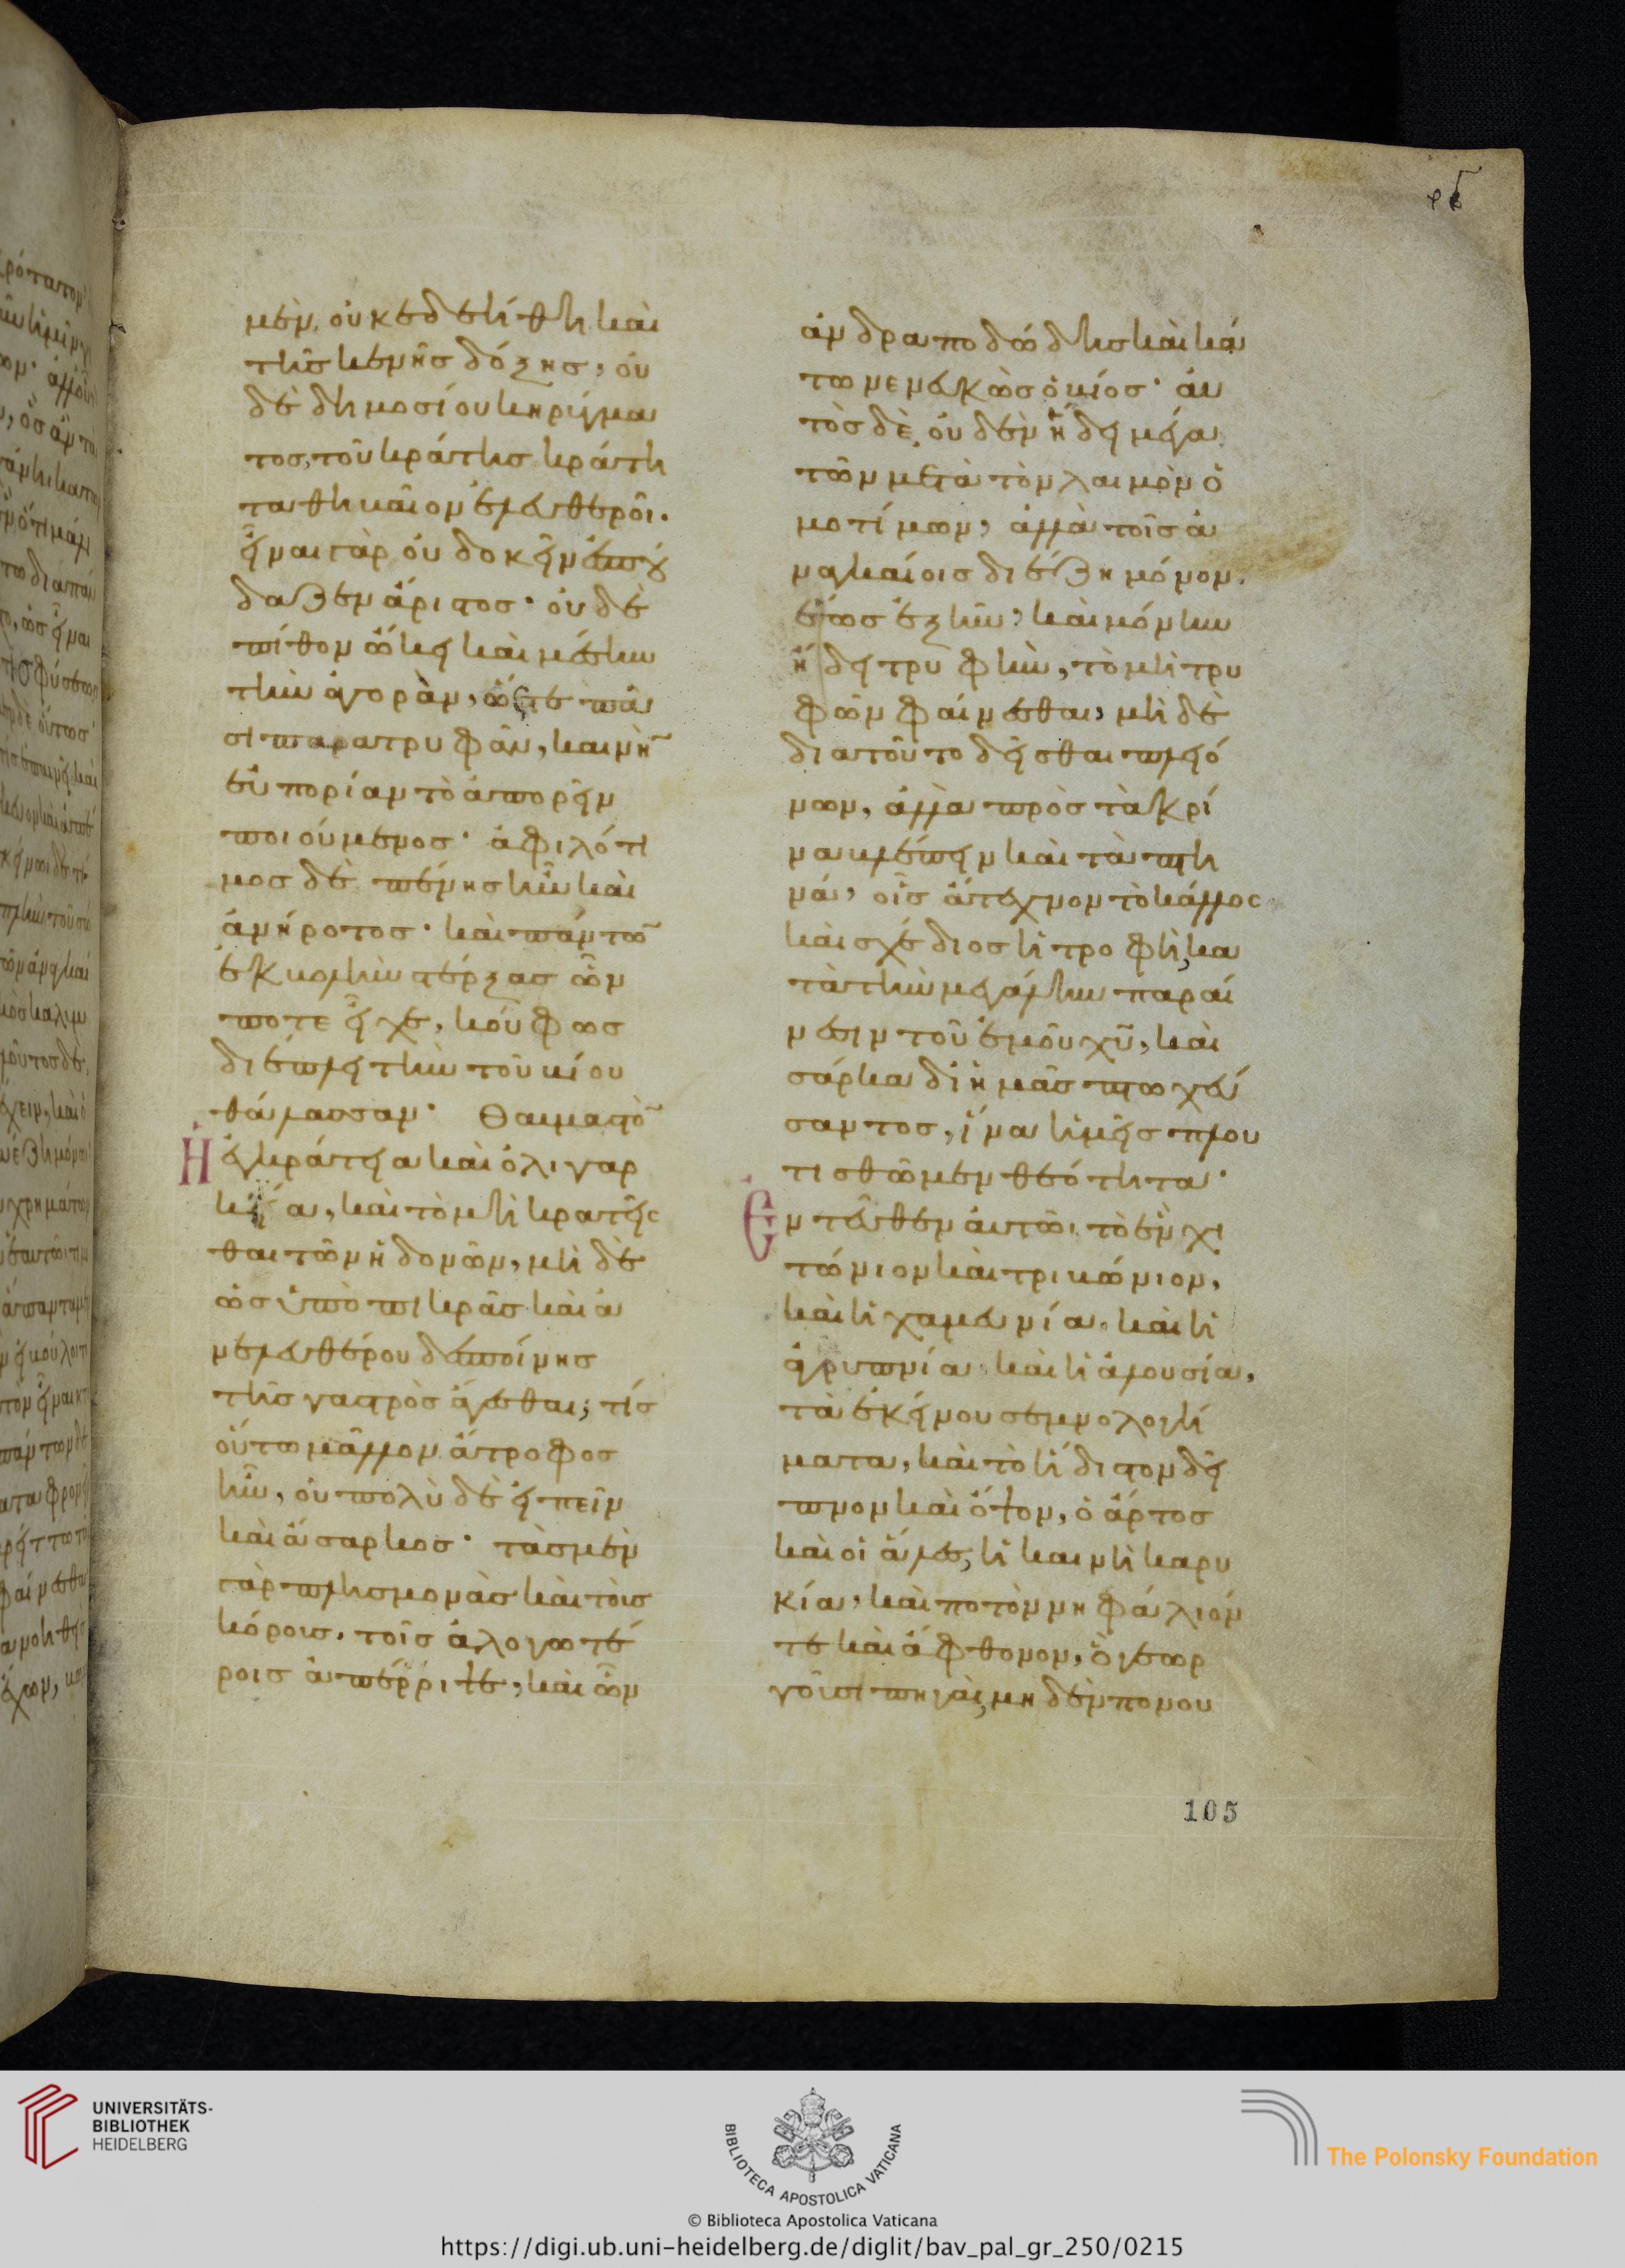 μὲν, οὐκ ἐδεήθη καὶ
τῆς κενῆς δόξης, οὐ
δὲ δημοσίου κηρύγμα
τος, τοῦ κράτης κράτη
τα θηβαῖον ἐλευθεροῖ.
εἶναι γὰρ οὐ δοκεῖν ἐσπού
δαζεν ἄριστος· οὐδὲ
πίθον ὤκει καὶ μέσην
τὴν ἀγορὰν, ὥστε πᾶ
σι παρατρυφᾶν, καινὴν
εὐπορίαν τὸ ἀπορεῖν
ποιούμενος· ἀφιλότι
μος δὲ πένης ἦν καὶ
ἀνήροτος· καὶ πάντων
ἐκβολὴν στέρξας ὧν
ποτε εἶχε, κούφως
διέπλει τὴν τοῦ βίου
θάλασσαν· Θαυμαστὸν
Ἡ ἐγκράτεια καὶ ὀλιγαρ
κεία, καὶ τὸ μὴ κρατεῖσ
θαι τῶν ἡδονῶν, μὴ δὲ
ὡς ὑπὸ πικρᾶς καὶ ἀ
νελευθέρου δεσποίνης
τῆς γαστρὸς ἄγεσθαι; τίς
οὕτω μᾶλλον ἄτροφος
ἦν, οὐ πολὺ δὲ εἰπεῖν
καὶ ἄσαρκος· τὰς μὲν
γὰρ πλησμονὰς καὶ τοὺς
κόρους, τοῖς ἀλογωτέ
ροις ἀπέρριψε, καὶ ὧν
ἀνδραποδώδης καὶ κά
τω νενευκὼς ὁ βίος· αὐ
τὸς δὲ οὐδὲν ἤδει μέγα
τῶν μετὰ τὸν λαιμὸν ὁ
μοτίμων, ἀλλὰ τοῖς ἀ
ναγκαίοις διέζη μόνον.
ἕως ἐξῆν, καὶ μόνην
ἤδει τρυφὴν, τὸ μὴ τρυ
φῶν φαίνεσθαι, μὴ δὲ
διατοῦτο δεῖσθαι πλειό
νων, ἀλλὰ πρὸς τὰ κρί
να βλέπειν καὶ τὰ πτη
νά, οἷς ἄτεχνον τὸ κάλλος
καὶ σχέδιος ἡ τροφὴ, κα
τὰ τὴν μεγάλην παραί
νεσιν τοῦ ἐμοῦ χῦ, καὶ
σάρκα δι ἡμᾶς πτωχεύ
σαντος, ἵνα ἡμεῖς πλου
τισθῶμεν θεότητα·
Ἐντεῦθεν αὐτῶ τὸ ἓν χι
τώνιον καὶ τριβώνιον,
καὶ ἡ χαμευνία, καὶ ἡ
ἀγρυπνία καὶ ἡ ἀλουσία,
τὰ ἐκείνου σεμνολογή
ματα, καὶ τὸ ἥδιστον δεῖ
πνον καὶ ὄψον, ὁ ἄρτος
καὶ οἱ ἅλες, ἡ καινὴ καρυ
κία, καὶ ποτὸν νηφάλιόν
τε καὶ ἄφθονον, ὃ γεωρ
γοῦσι πηγαὶ, μηδὲν πονου
105
UNIVERSITÄTS-
BIBLIOTHEK
HEIDELBERG
BIBLIOTECA APOSTOLICA VATICANA
The Polonsky Foundation
© Biblioteca Apostolica Vaticana
https://digi.ub.uni-heidelberg.de/diglit/bav_pal_gr_250/0215